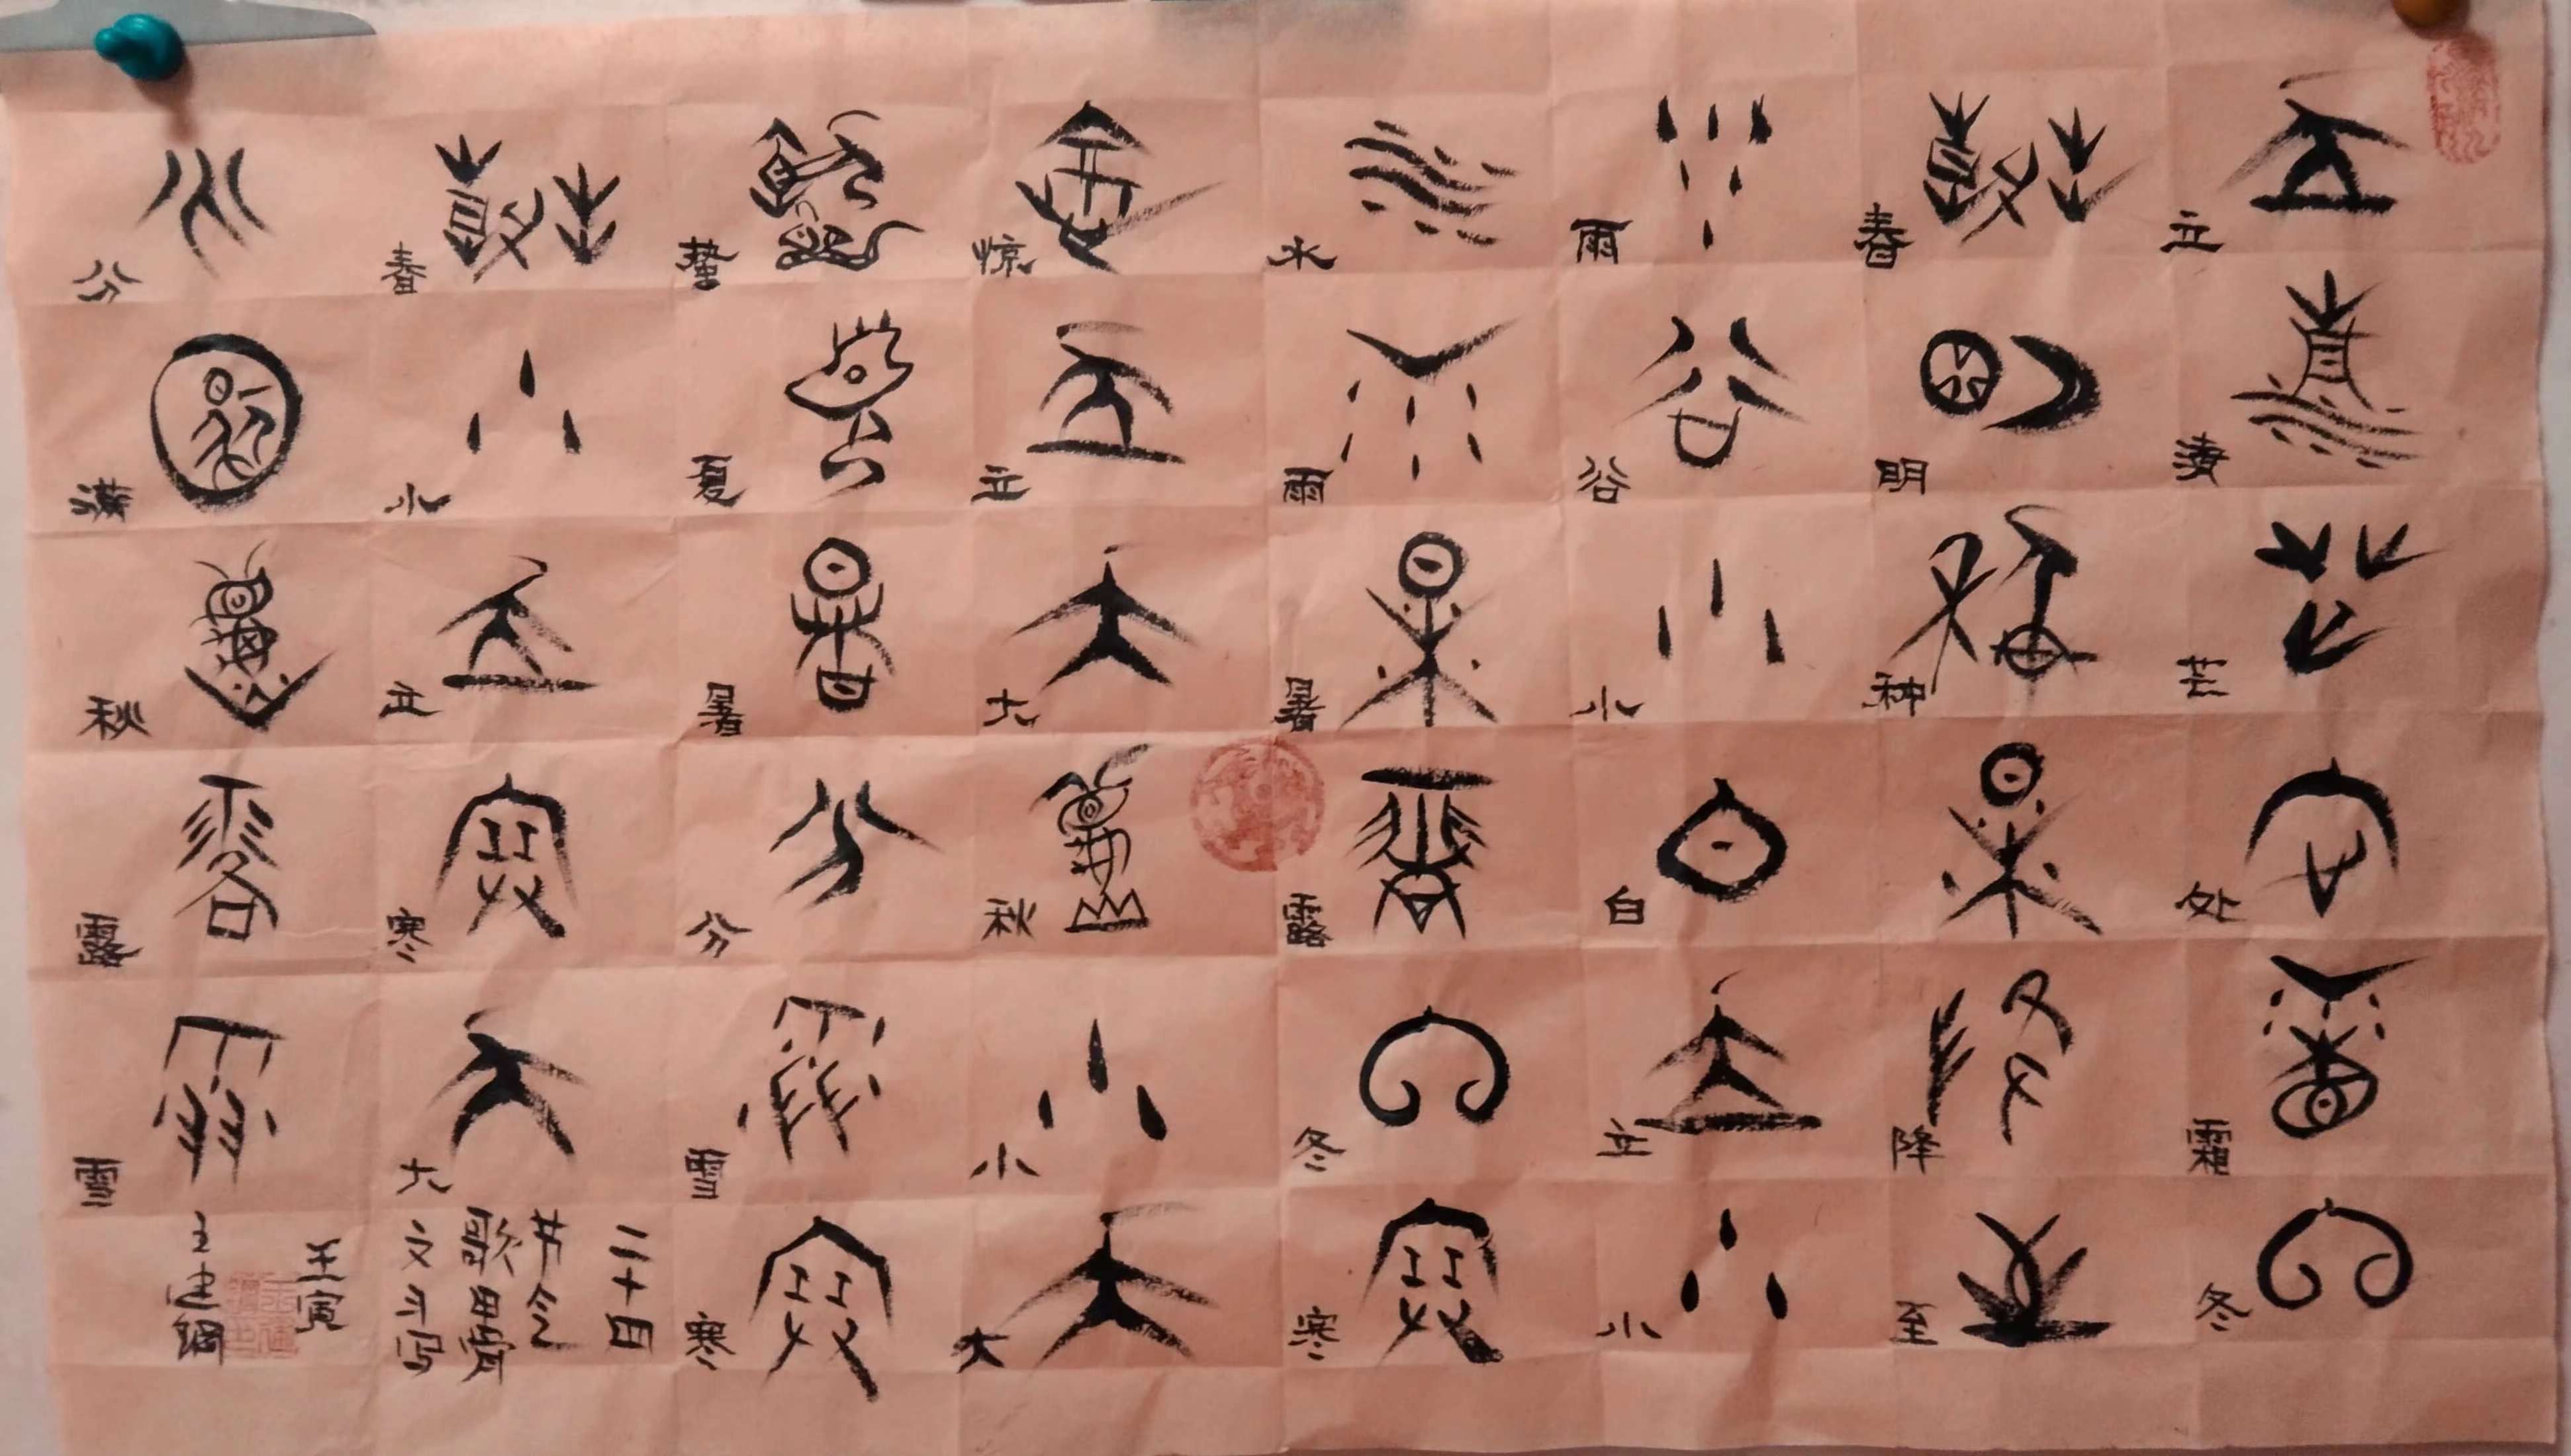 立春雨水惊蛰春分
清明谷雨立夏小满
芒种小暑大暑立秋
处暑白露秋分寒露
霜降立冬小雪大雪
冬至小寒大寒
二十四
节令
歌甲骨
文斗写
壬寅